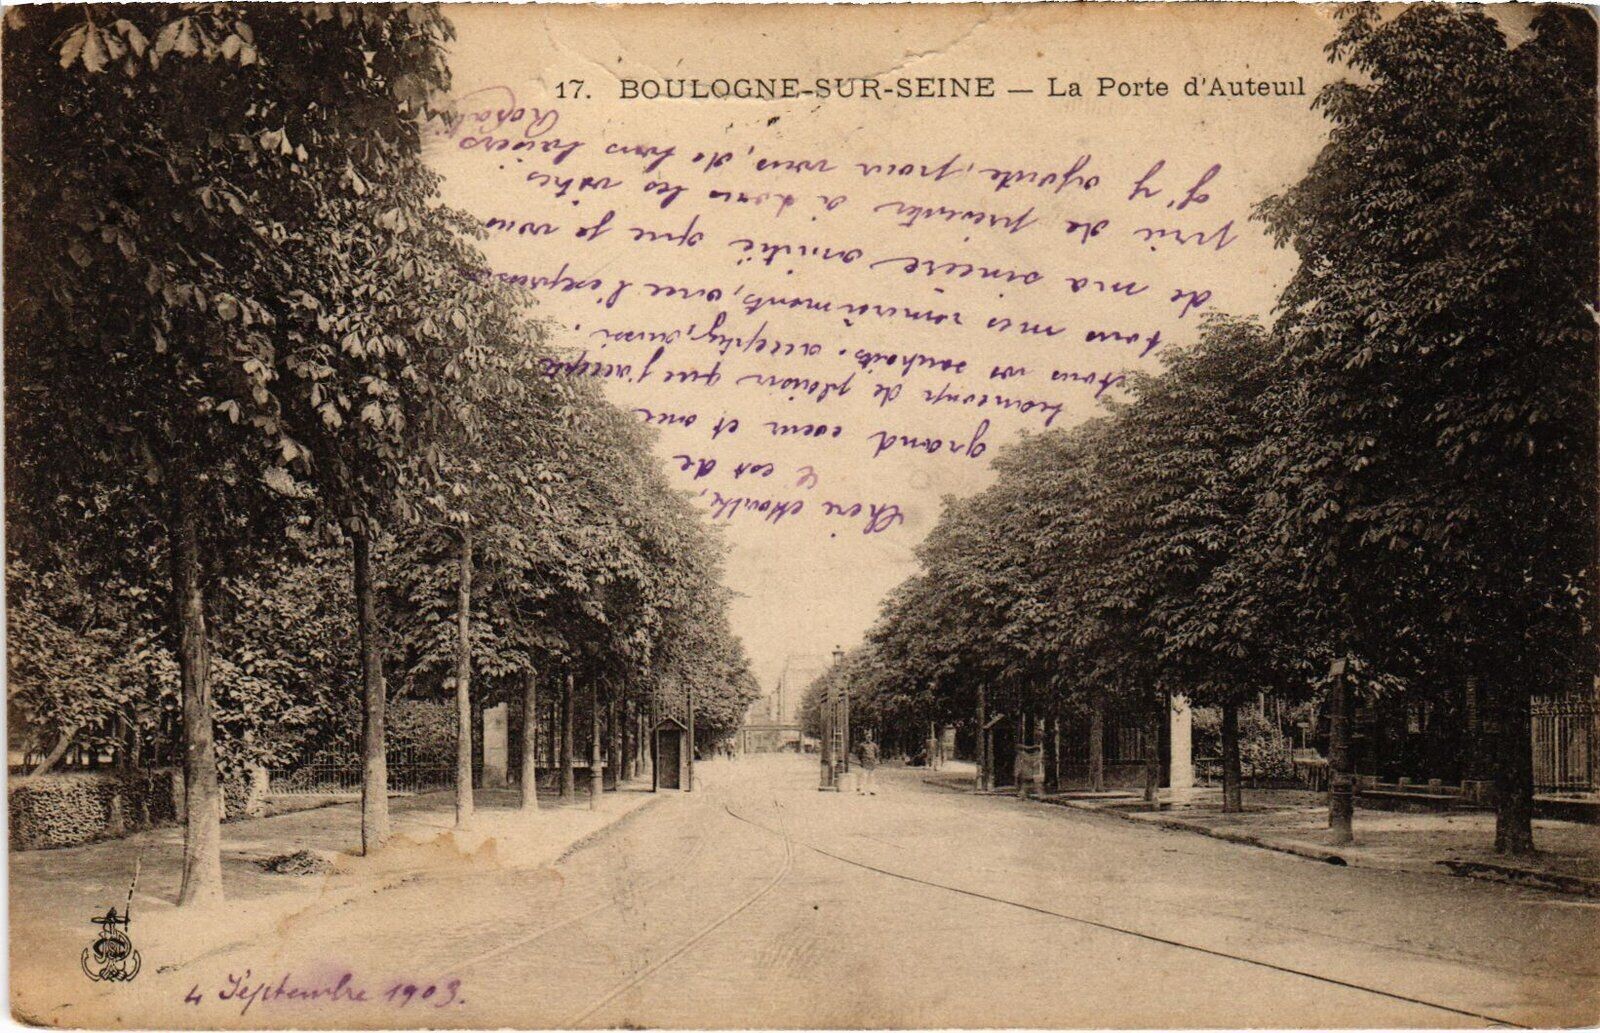 17. BOULOGNE-SUR-SEINE — La Porte d'Auteuil
Chère
C'est de
grand cœur et avec
beaucoup de plaisir que j'accepte
tous vos souhaits. acceptez, aussi
tous mes remerciments, avec l'expression
de ma sincère amitié que je vous
prie de présenter à tous les vôtres.
J'y ajoute, pour vous, de bons baisers
4 Septembre 1903.